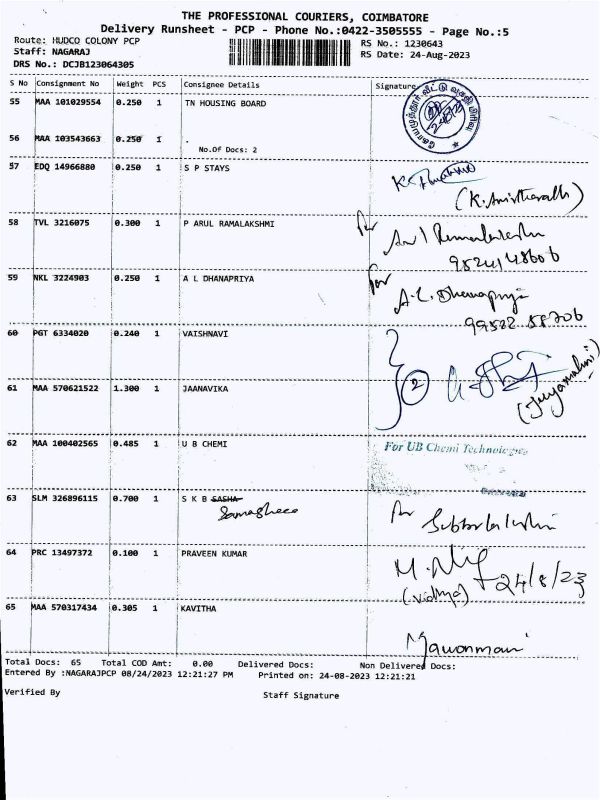 THE PROFESSIONAL COURIERS, COIMBATORE
Delivery Runsheet - PCP - Phone No.:0422-3505555 - Page No.:5
Route: HUDCO COLONY PCP
Staff: NAGARAJ
DRS No.: DCJB123064305
RS No.: 1230643
RS Date: 24-Aug-2023
S No Consignment No Weight PCS Consignee Details Signature
55 MAA 101029554 0.250 1 TN HOUSING BOARD
56 MAA 103543663 0.250 1 .
No.Of Docs: 2
57 EDQ 14966880 0.250 1 S P STAYS
58 TVL 3216075 0.300 1 P ARUL RAMALAKSHMI
For
59 NKL 3224903 0.250 1 A L DHANAPRIYA
For A.L. Dhanapriya
60 PGT 6334020 0.240 1 VAISHNAVI
2
61 MAA 570621522 1.300 1 JAANAVIKA
62 MAA 100402565 0.485 1 U B CHEMI
For UB Chemi Technologies
63 SLM 326896115 0.700 1 S K B SASHA
For
64 PRC 13497372 0.100 1 PRAVEEN KUMAR
(Vidhya) 24/8/23
65 MAA 570317434 0.305 1 KAVITHA
Total Docs: 65 Total COD Amt: 0.00 Delivered Docs: Non Delivered Docs:
Entered By :NAGARAJPCP 08/24/2023 12:21:27 PM Printed on: 24-08-2023 12:21:21
Verified By Staff Signature